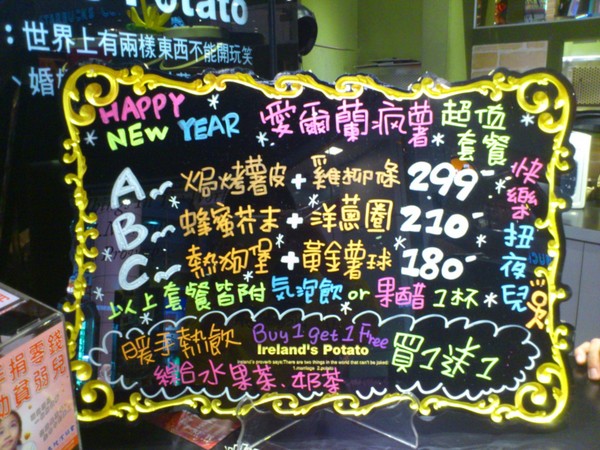 Potato
：世界上有兩樣東西不能開玩笑
、婚
HAPPY
NEW YEAR
愛爾蘭瘋薯超位
套餐
A～焗烤薯皮+雞柳條 299-
B～蜂蜜芥末+洋蔥圈 210-
C～熱狗堡+黃金薯球 180-
快樂扭夜兒
以上套餐皆附 氣泡飲 or 果醋 1杯
暖手熱飲 Buy 1 get 1 Free 買1送1
Ireland's Potato
Ireland's proverb says:There are two things in the world that can't be joked:
1.marriage 2.potato
綜合水果茶.奶茶
捐零錢
助貧弱兒